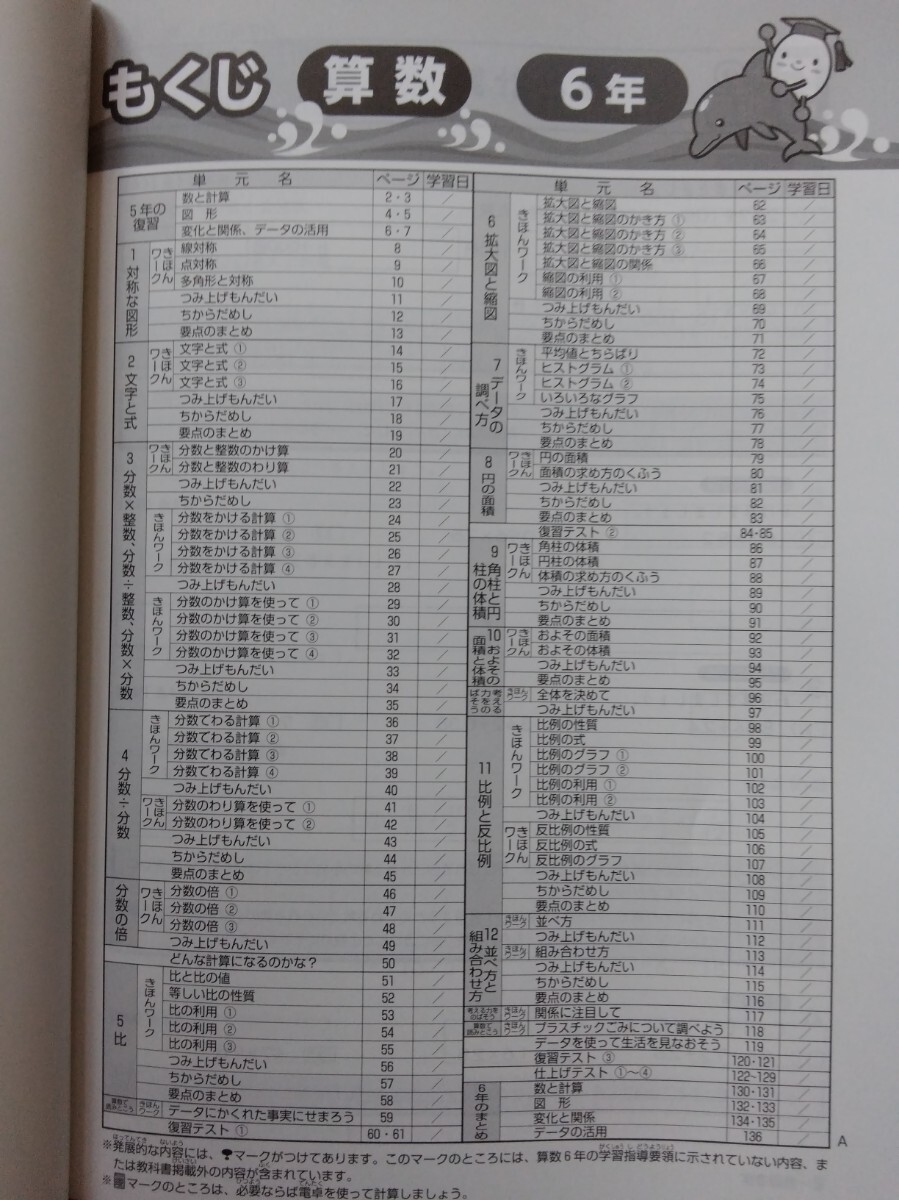 もくじ 算数 6年
単元名 ページ 学習日
5年の復習
数と計算 2・3 /
図形 4・5 /
変化と関係、データの活用 6・7 /
1 対称な図形
きほんワーク
線対称 8 /
点対称 9 /
多角形と対称 10 /
つみ上げもんだい 11 /
ちからだめし 12 /
要点のまとめ 13 /
2 文字と式
きほんワーク
文字と式 ① 14 /
文字と式 ② 15 /
文字と式 ③ 16 /
つみ上げもんだい 17 /
ちからだめし 18 /
要点のまとめ 19 /
3 分数×整数、分数÷整数、分数×分数
きほんワーク
分数と整数のかけ算 20 /
分数と整数のわり算 21 /
つみ上げもんだい 22 /
ちからだめし 23 /
きほんワーク
分数をかける計算 ① 24 /
分数をかける計算 ② 25 /
分数をかける計算 ③ 26 /
分数をかける計算 ④ 27 /
つみ上げもんだい 28 /
きほんワーク
分数のかけ算を使って ① 29 /
分数のかけ算を使って ② 30 /
分数のかけ算を使って ③ 31 /
分数のかけ算を使って ④ 32 /
つみ上げもんだい 33 /
ちからだめし 34 /
要点のまとめ 35 /
4 分数÷分数
きほんワーク
分数でわる計算 ① 36 /
分数でわる計算 ② 37 /
分数でわる計算 ③ 38 /
分数でわる計算 ④ 39 /
つみ上げもんだい 40 /
きほんワーク
分数のわり算を使って ① 41 /
分数のわり算を使って ② 42 /
つみ上げもんだい 43 /
ちからだめし 44 /
要点のまとめ 45 /
分数の倍
きほんワーク
分数の倍 ① 46 /
分数の倍 ② 47 /
分数の倍 ③ 48 /
つみ上げもんだい 49 /
どんな計算になるのかな？ 50 /
5 比
きほんワーク
比と比の値 51 /
等しい比の性質 52 /
比の利用 ① 53 /
比の利用 ② 54 /
比の利用 ③ 55 /
つみ上げもんだい 56 /
ちからだめし 57 /
要点のまとめ 58 /
算数で読みとこう きほんワーク データにかくれた事実にせまろう 59 /
復習テスト ① 60・61 /
単元名 ページ 学習日
6 拡大図と縮図
きほんワーク
拡大図と縮図 62 /
拡大図と縮図のかき方 ① 63 /
拡大図と縮図のかき方 ② 64 /
拡大図と縮図のかき方 ③ 65 /
拡大図と縮図の関係 66 /
縮図の利用 ① 67 /
縮図の利用 ② 68 /
つみ上げもんだい 69 /
ちからだめし 70 /
要点のまとめ 71 /
7 データの調べ方
きほんワーク
平均値とちらばり 72 /
ヒストグラム ① 73 /
ヒストグラム ② 74 /
いろいろなグラフ 75 /
つみ上げもんだい 76 /
ちからだめし 77 /
要点のまとめ 78 /
8 円の面積
きほんワーク
円の面積 79 /
面積の求め方のくふう 80 /
つみ上げもんだい 81 /
ちからだめし 82 /
要点のまとめ 83 /
復習テスト ② 84・85 /
9 角柱と円柱の体積
きほんワーク
角柱の体積 86 /
円柱の体積 87 /
体積の求め方のくふう 88 /
つみ上げもんだい 89 /
ちからだめし 90 /
要点のまとめ 91 /
10 およその面積と体積
きほんワーク
およその面積 92 /
およその体積 93 /
つみ上げもんだい 94 /
要点のまとめ 95 /
考える力をのばそう きほんワーク 全体を決めて 96 /
つみ上げもんだい 97 /
11 比例と反比例
きほんワーク
比例の性質 98 /
比例の式 99 /
比例のグラフ ① 100 /
比例のグラフ ② 101 /
比例の利用 ① 102 /
比例の利用 ② 103 /
つみ上げもんだい 104 /
きほんワーク
反比例の性質 105 /
反比例の式 106 /
反比例のグラフ 107 /
つみ上げもんだい 108 /
ちからだめし 109 /
要点のまとめ 110 /
12 並べ方と組み合わせ方
きほんワーク 並べ方 111 /
つみ上げもんだい 112 /
きほんワーク 組み合わせ方 113 /
つみ上げもんだい 114 /
ちからだめし 115 /
要点のまとめ 116 /
考える力をのばそう きほんワーク 関係に注目して 117 /
算数で読みとこう きほんワーク プラスチックごみについて調べよう 118 /
データを使って生活を見なおそう 119 /
復習テスト ③ 120・121 /
仕上げテスト ①～④ 122～129 /
6年のまとめ
数と計算 130・131 /
図形 132・133 /
変化と関係 134・135 /
データの活用 136 /
A
※発展的な内容には、マークがつけてあります。このマークのところには、算数6年の学習指導要領に示されていない内容、ま
たは教科書掲載外の内容が含まれています。
※マークのところは、必要ならば電卓を使って計算しましょう。